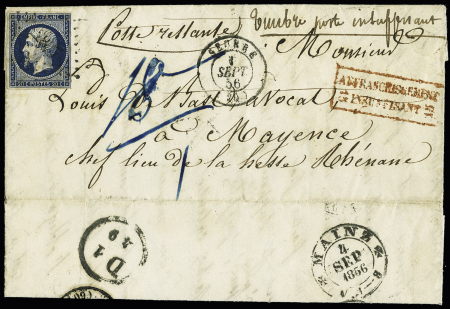 EMPIRE FRANC.
Poste restante
Timbre poste insuffisant
SEURRE
SEPT
56
Monsieur
AFFRANCHISSEMENT
INSUFFISANT
Louis Bast avocat
a Mayence
chef lieu de la hesse Rhénane
D 1
49
MAINZ
4
SEP
1856